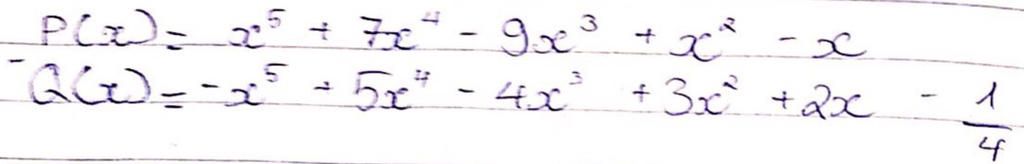 P(x) = x⁵ + 7x⁴ - 9x³ + x² - x
- Q(x) = -x⁵ + 5x⁴ - 4x³ + 3x² + 2x - 1/4